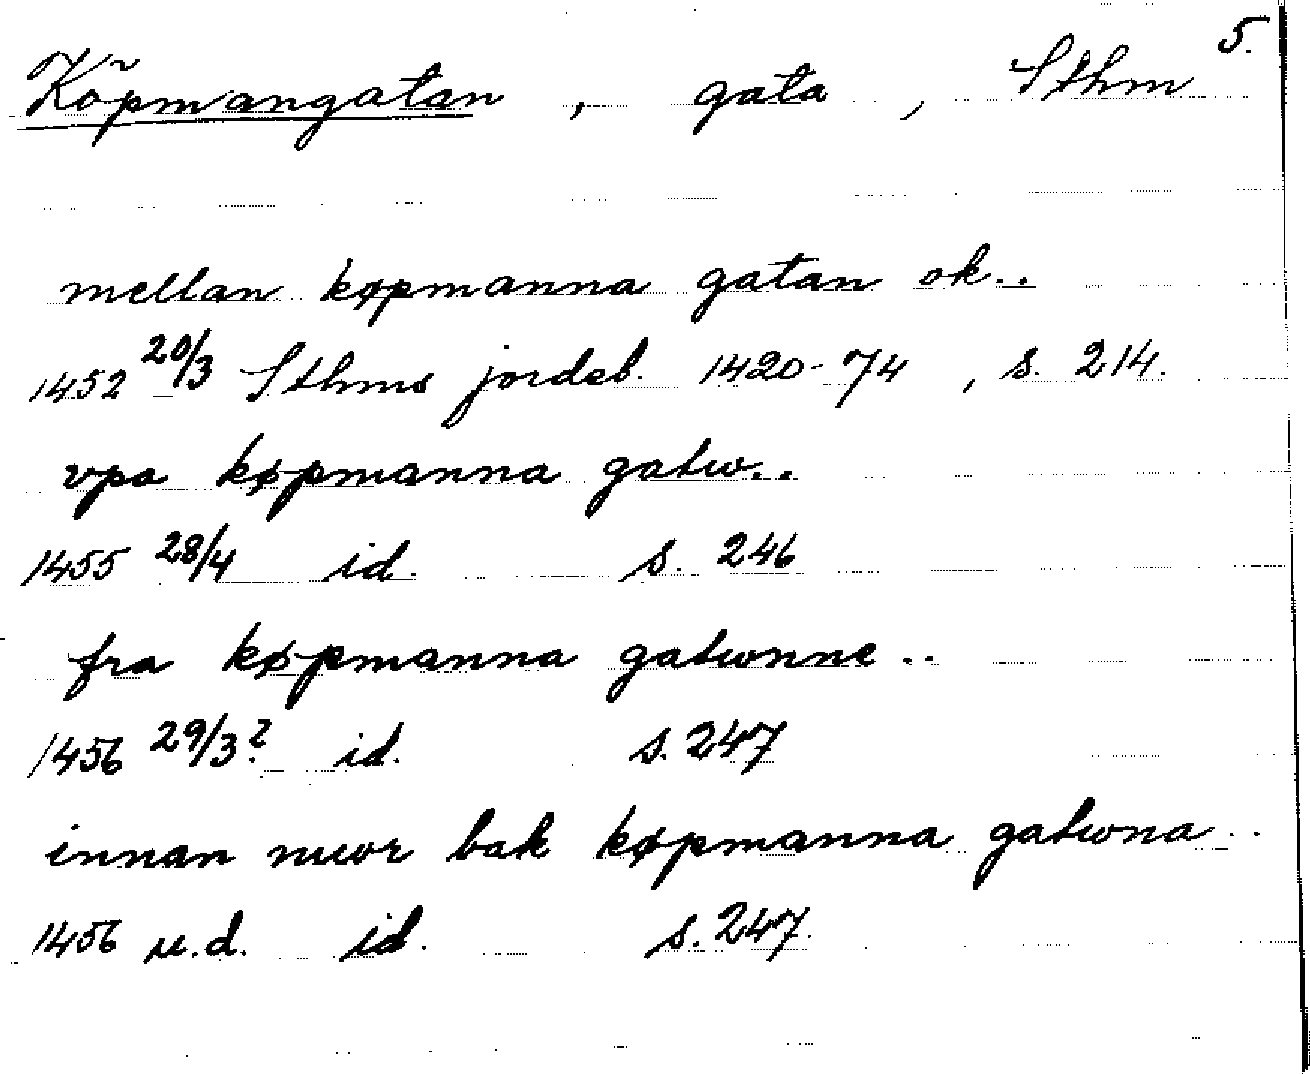 5.
Köpmangatan , gata , Sthm
mellan køpmanna gatan ok..
1452 20/3 Sthms jordeb. 1420-74 , s. 214.
vpa køpmanna gatw..
1455 28/4 id. s. 246
fra køpmanna gatwnne ..
1456 29/3? id. s. 247
innan mwr bak køpmanna gatwna ..
1456 u.d. id. s. 247.